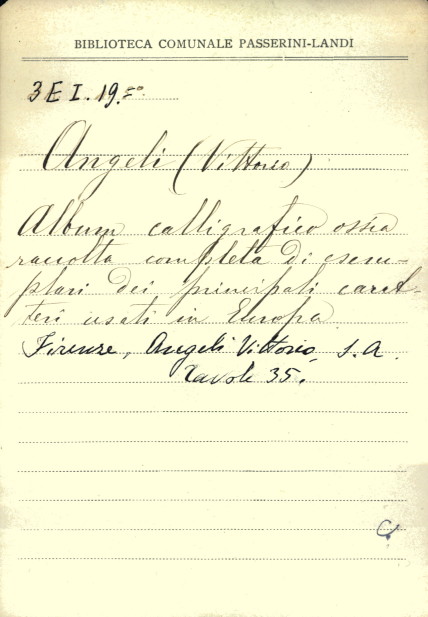 BIBLIOTECA COMUNALE PASSERINI-LANDI
3 E I. 19.
Angeli (Vittorio)
Album calligrafico ossia
raccolta completa di esem-
plari dei principali carat-
teri usati in Europa
Firenze, Angeli Vittorio, S. A.
Tavole 35.